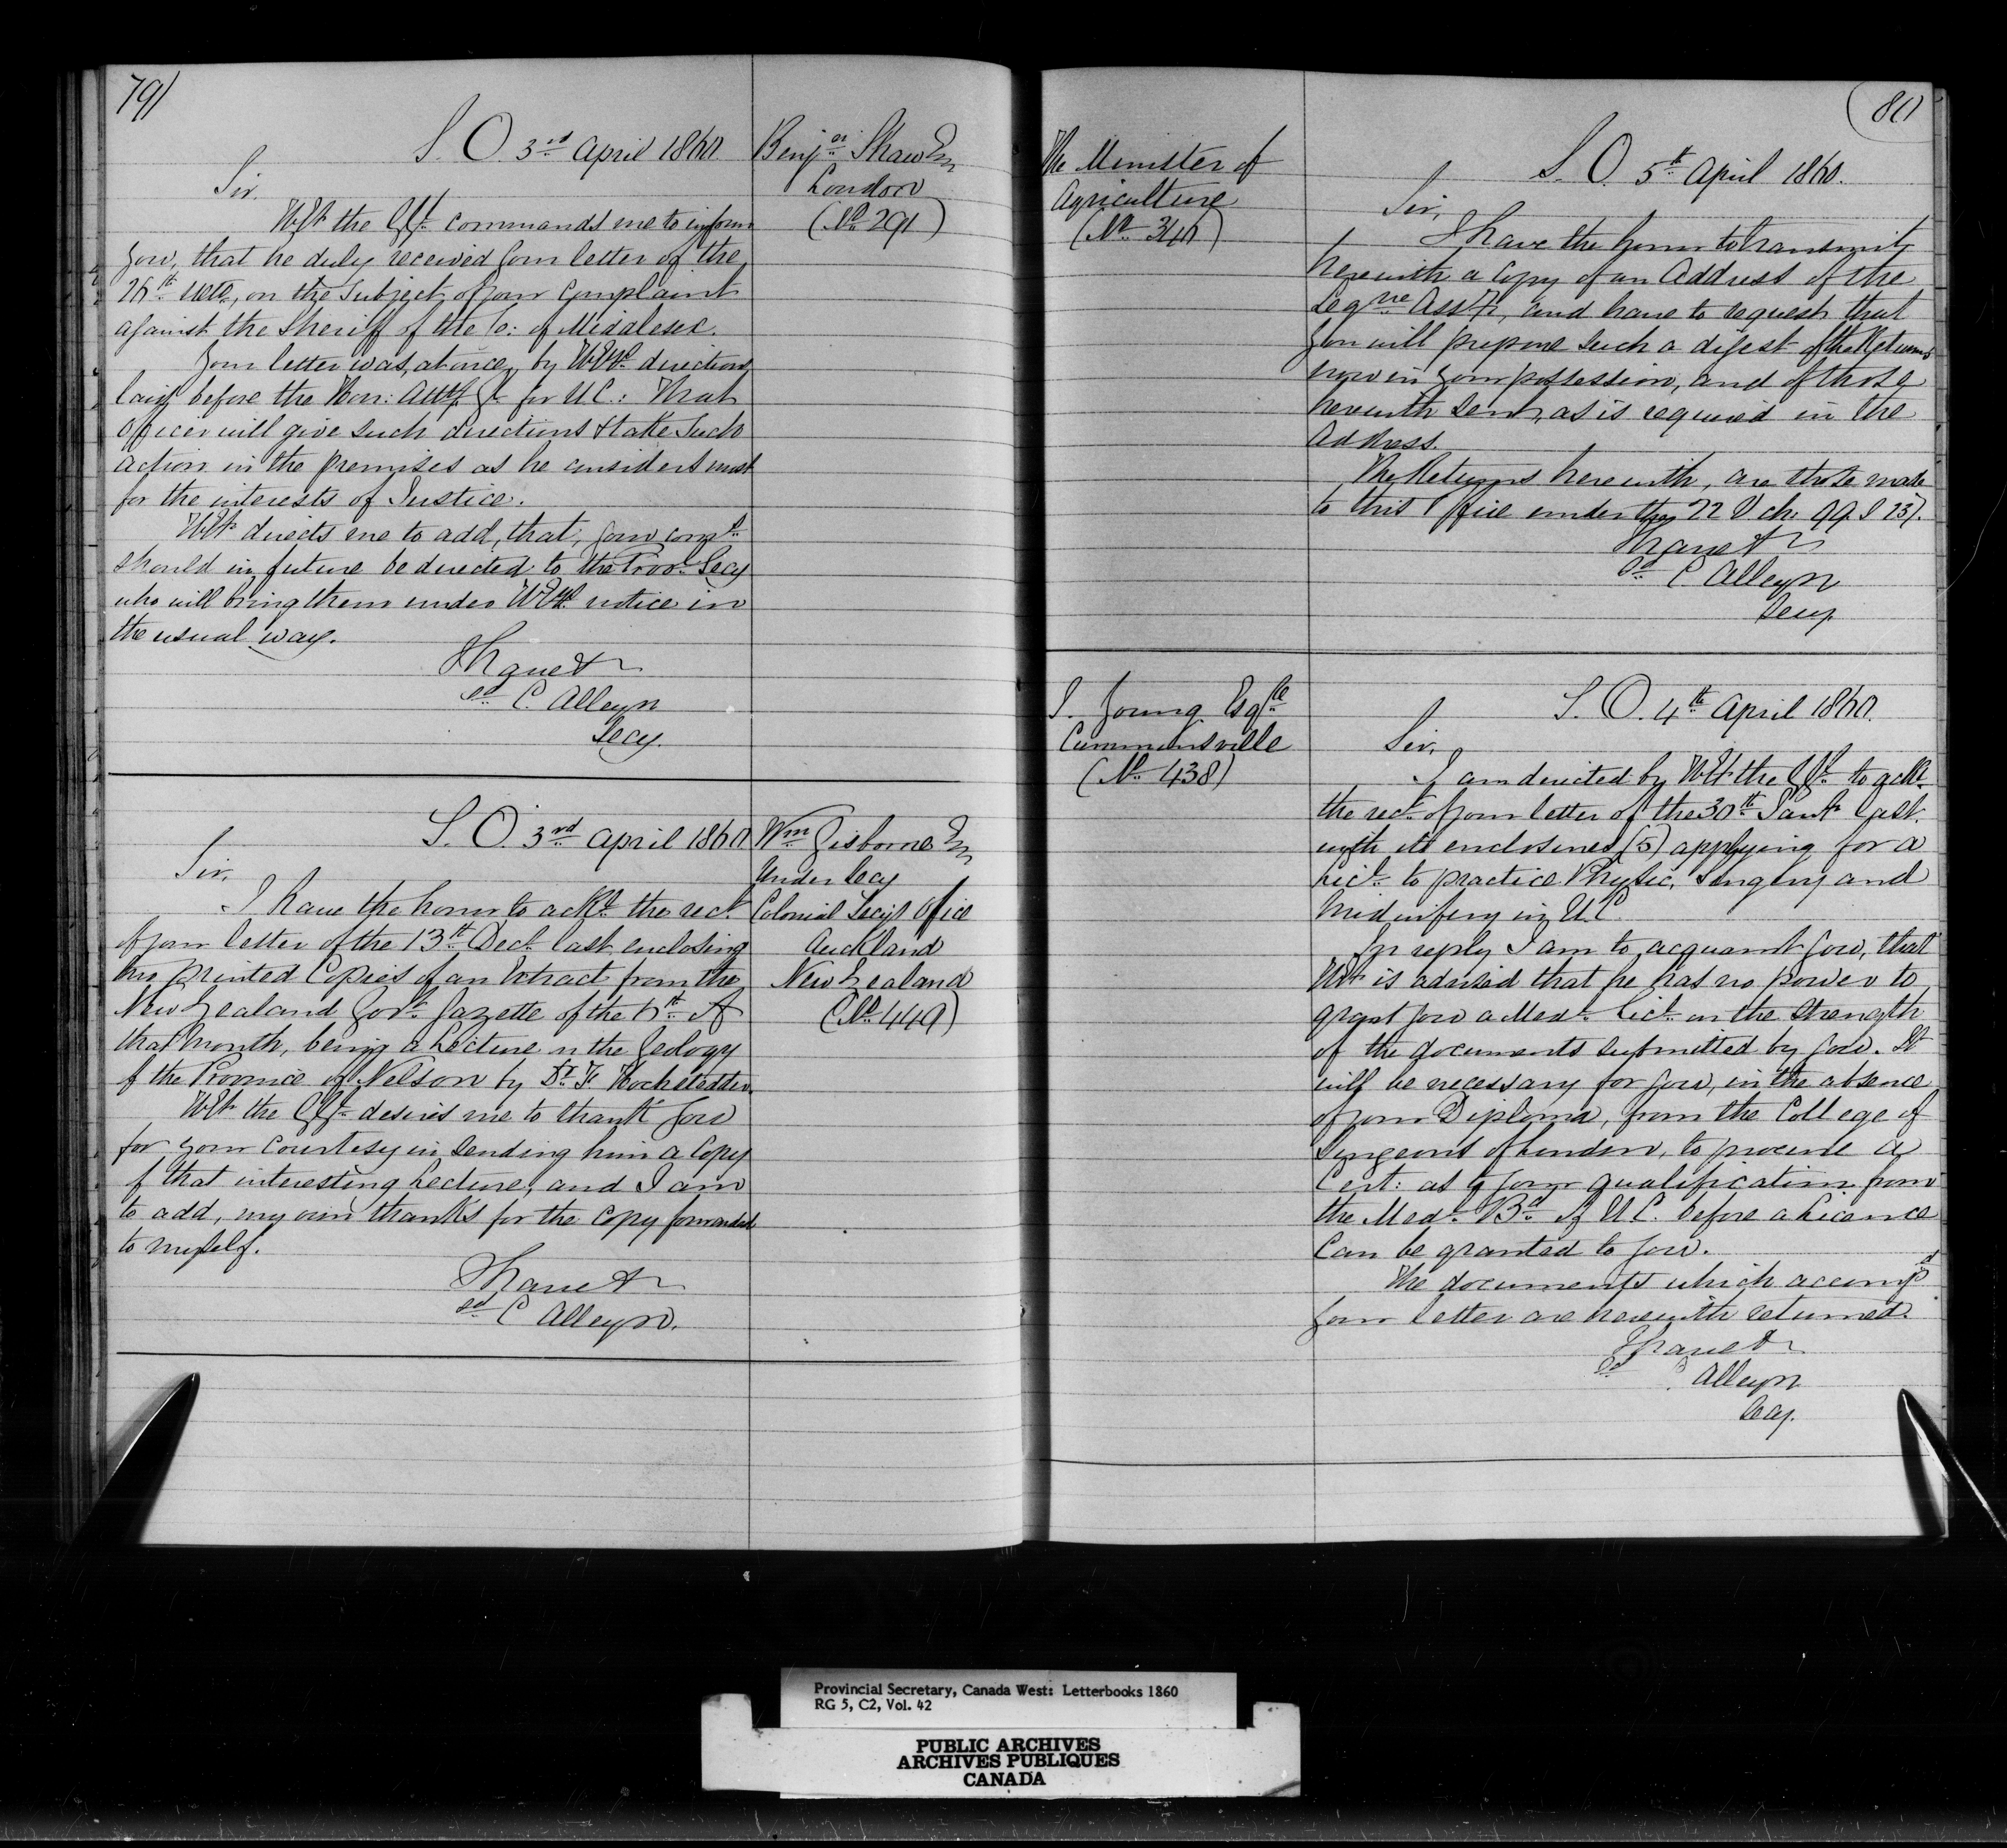 79
S. O. 3rd April 1860.
Benjn Shaw Esq
London
(No 291)
Sir.
H.E. the G.G. commands me to inform
you, that he duly received your letter of the
ulto, on the subject of your complaint
against the Sheriff of the Co: of Middlesex.
Your letter was, at once, by H.Ey's directions
laid before the Hon: Atty Gl for U.C.: That
Officer will give such directions & take such
action in the premises as he considers meet
for the interests of Justice.
H.E. directs me to add, that, your comns
should in future be directed to the Provl Secy
who will bring them under H.Ey's notice in
the usual way.
I have &c
sd C. Alleyn
Secy.
S. O. 3rd April 1860
Wm Gisborne Esq
Under Secy
Colonial Secy's Office
Auckland
New Zealand
(No 449)
Sir.
I have the honor to ackn the rect
of your letter of the 13th Decr last, enclosing
two printed Copies of an Extract from the
New Zealand Govt Gazette of the 6th of
that month, being a Lecture on the Geology
of the Province of Nelson by Dr F. Hochstetter.
H.E. the G.G. desires me to thank you
for your courtesy in sending him a copy
of that interesting Lecture, and I am
to add, my own thanks for the copy forwarded
to myself.
I have &c
sd C Alleyn.
80
The Minister of
Agriculture
(No 346)
S. O. 5th April 1860.
Sir,
I have the honor to transmit
herewith a copy of an Address of the
Legve Assy, and have to request that
you will prepare such a digest of the Returns
now in your possession, and of those
herewith sent, as is required in the
Address.
The Returns herewith, are those made
to this Office under the 22 V ch. 99. S 23.
I have &c
sd C Alleyn
Secy.
I. Young Esqre
Cumminsville
(No 438)
S. O. 4th April 1860.
Sir,
I am directed by H.E. the G.G. to ackn
the rect of your letter of the 30th last.
with its enclosures (5) applying for a
Lice to practice Physic, Surgery and
Midwifery in U.C.
In reply I am to acquaint you, that
H.E. is advised that he has no power to
grant you a Medl Lice on the strength
of the documents submitted by you. It
will be necessary for you, in the absence
of your Diploma, from the College of
Surgeons of London, to procure a
Cert: as to your qualification from
the Medl Bd of U.C. before a Licence
can be granted to you.
The documents which accompd
your letter are herewith returned.
I have &c
sd C Alleyn
Secy.
Provincial Secretary, Canada West: Letterbooks 1860
RG 5, C2, Vol. 42
PUBLIC ARCHIVES
ARCHIVES PUBLIQUES
CANADA